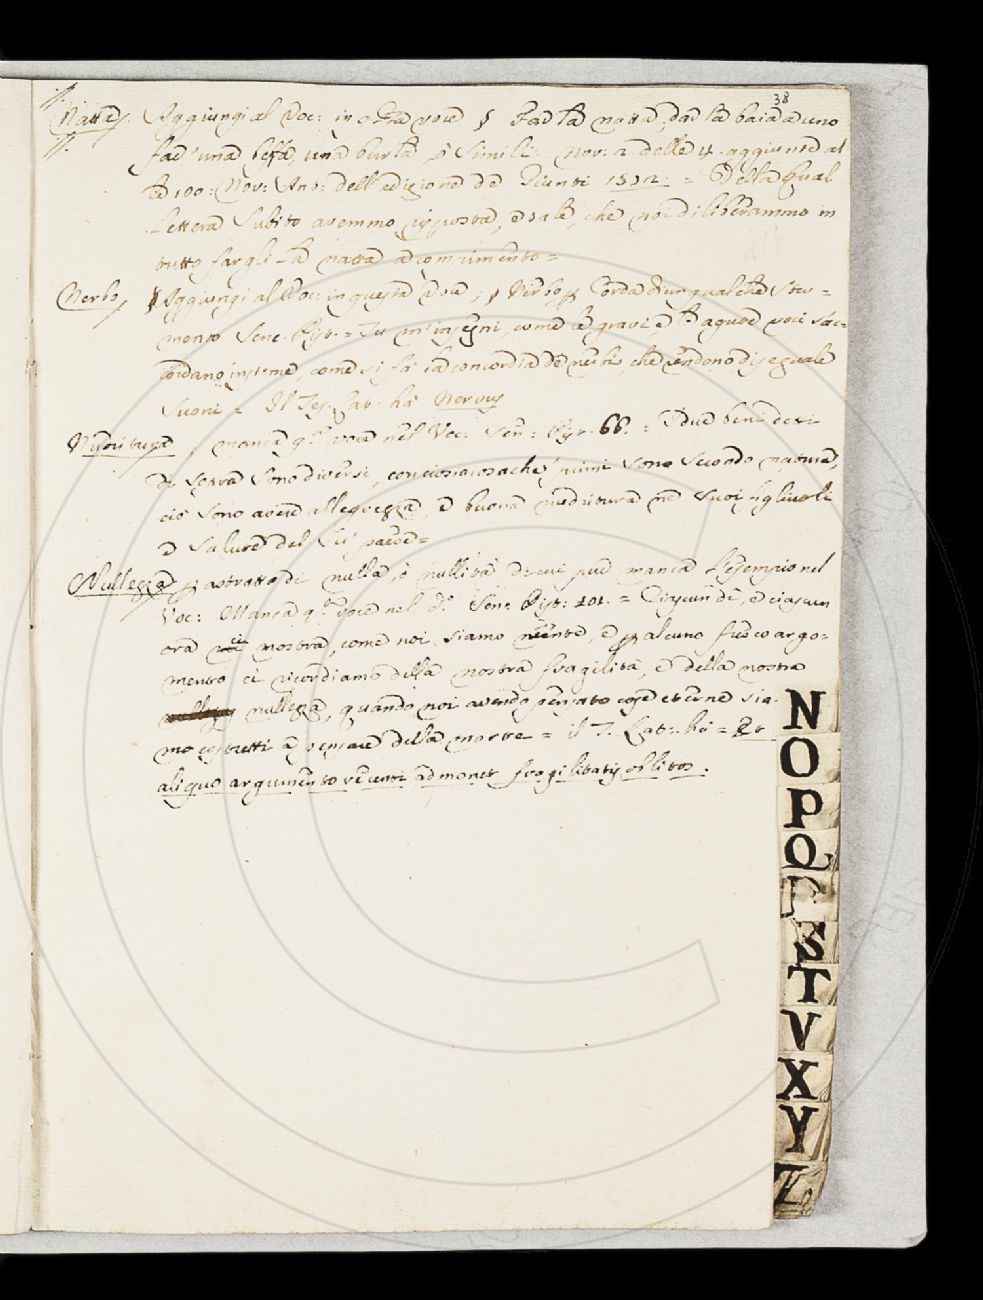 38
Natta. Aggiungi al Voc: in q.ta voce § Far la natta, dar la baia a uno
far' una beffa, una burla, e simili. Nov: 2 delle 4. aggiunte al
le 100: Nov: Ant: dell'edizione de Giunti 1572. = Della qual
Lettera subito avemmo risposta, e tale, che noi diliberammo in
tutto fargli la natta a compimento=
Nerbo, Aggiungi al Voc: in questa voce; § Nerbo p Corda di qualche stru=
mento Sene. Pist. = Tu m'insegni, come le gravi e le agute voci s'ac=
cordano insieme, come si fa la concordia de nerbi, che rendono diseguale
suoni = Il Tes. Lat. ha Nervus
Nudritura, manca q.a voce nel Voc: Sen: Pist. 66. = Due beni detti
di sopra sono diversi, conciossiacosachè primi sono secondo natura,
ciò sono avere allegrezza, e buona nudritura ne suoi figliuoli
e salute del suo paese=
Nullezza, p astratto di nulla, o nullità, di cui pur manca l'esempio nel
Voc: Manca q.a voce nel d.o Sene. Pist: 101. = Ciascun dì, e ciascun
ora ci mostra, come noi siamo niente, e p alcuno fresco argo=
mento ci ricordiamo della nostra fragilità, e della nostra
nullezza, quando noi avendo pensato cose eterne sia.
mo costretti a pensare della morte = il T. Lat: ha = Et
aliquo argumento recenti admonet fragilitatis oblitos.
N
O
P
Q
S
T
V
X
Y
Z